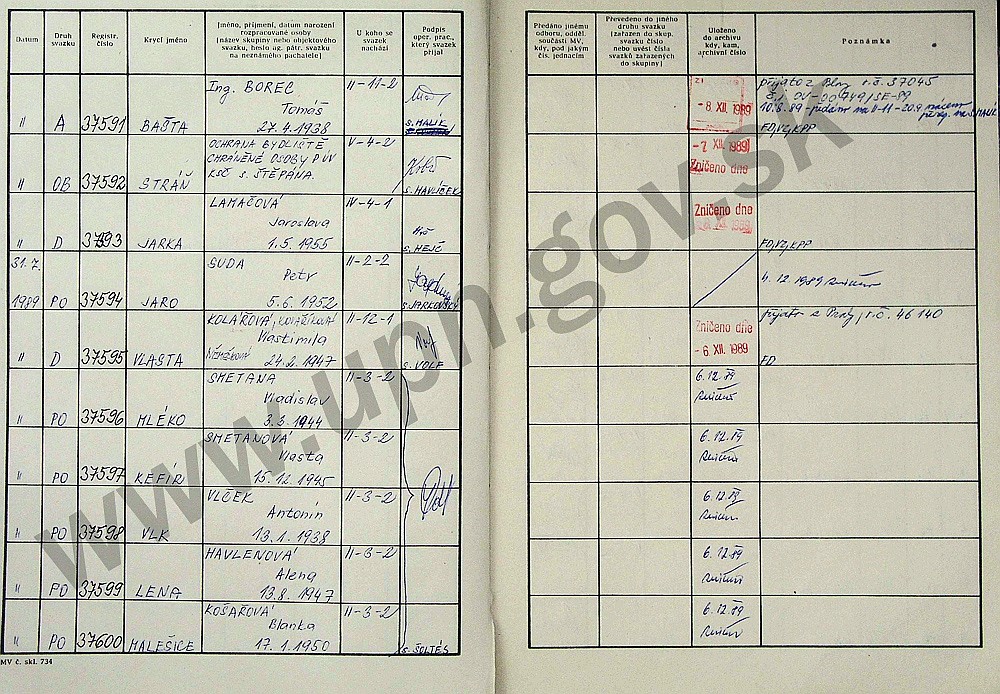 Datum
Druh svazku
Registr. číslo
Krycí jméno
[jméno, příjmení, datum narození
rozpracované osoby
[název skupiny nebo objektového
svazku, heslo ag. pátr. svazku
na neznámého pachatele]
U koho se
svazek
nachází
Podpis
oper. prac.,
který svazek
přijal
Předáno jinému
odboru, odděl.
součásti MV,
kdy, pod jakým
čís. jednacím
Převedeno do jiného
druhu svazku
[zařazen do skup.
svazku číslo
nebo uvést čísla
svazků zařazených
do skupiny]
Uloženo
do archivu
kdy, kam,
archivní číslo
Poznámka
" A 37591 BAŠTA
Ing. BOREC
Tomáš
27.4.1938
II-11-2
s. MALÍK
- 8. XII. 1989
přijato z Plzně r.č. 37045
FD, VZ, KPP
" OB 37592 STRÁŇ
OCHRANA BYDLIŠTĚ
CHRÁNĚNÉ OSOBY P ÚV
KSČ s. ŠTĚPÁNA.
V-4-2
s. HAVLÍČEK
- 7. XII. 1989
Zničeno dne
" D 37593 JARKA
LAMAČOVÁ
Jaroslava
1.5.1955
IV-4-1
s. HEJČ
Zničeno dne
FD, VZ, KPP
31.7.
1989 PO 37594 JARO
SUDA
Petr
5.6.1952
II-2-2
s. JARKOVSKÝ
4.12.1989 zničen
" D 37595 VLASTA
KOLÁŘOVÁ, KOVAŘÍKOVÁ
Vlastimila
24.2.1947
II-12-1
s. VOLF
Zničeno dne
- 6. XII. 1989
r.č. 46140
FD
" PO 37596 MLÉKO
SMETANA
Vladislav
3.3.1944
II-3-2
6.12.89
zničen
" PO 37597 KEFÍR
SMETANOVÁ
Vlasta
15.12.1945
II-3-2
6.12.89
zničen
" PO 37598 VLK
VLČEK
Antonín
13.1.1938
II-3-2
6.12.89
zničen
" PO 37599 LENA
HAVLENOVÁ
Alena
13.8.1947
II-3-2
6.12.89
zničen
" PO 37600 MALEŠICE
KOŠAŘOVÁ
Blanka
17.1.1950
II-3-2
s. ŠOLTÉS
6.12.89
zničen
MV č. skl. 734
www.upn.gov.sk